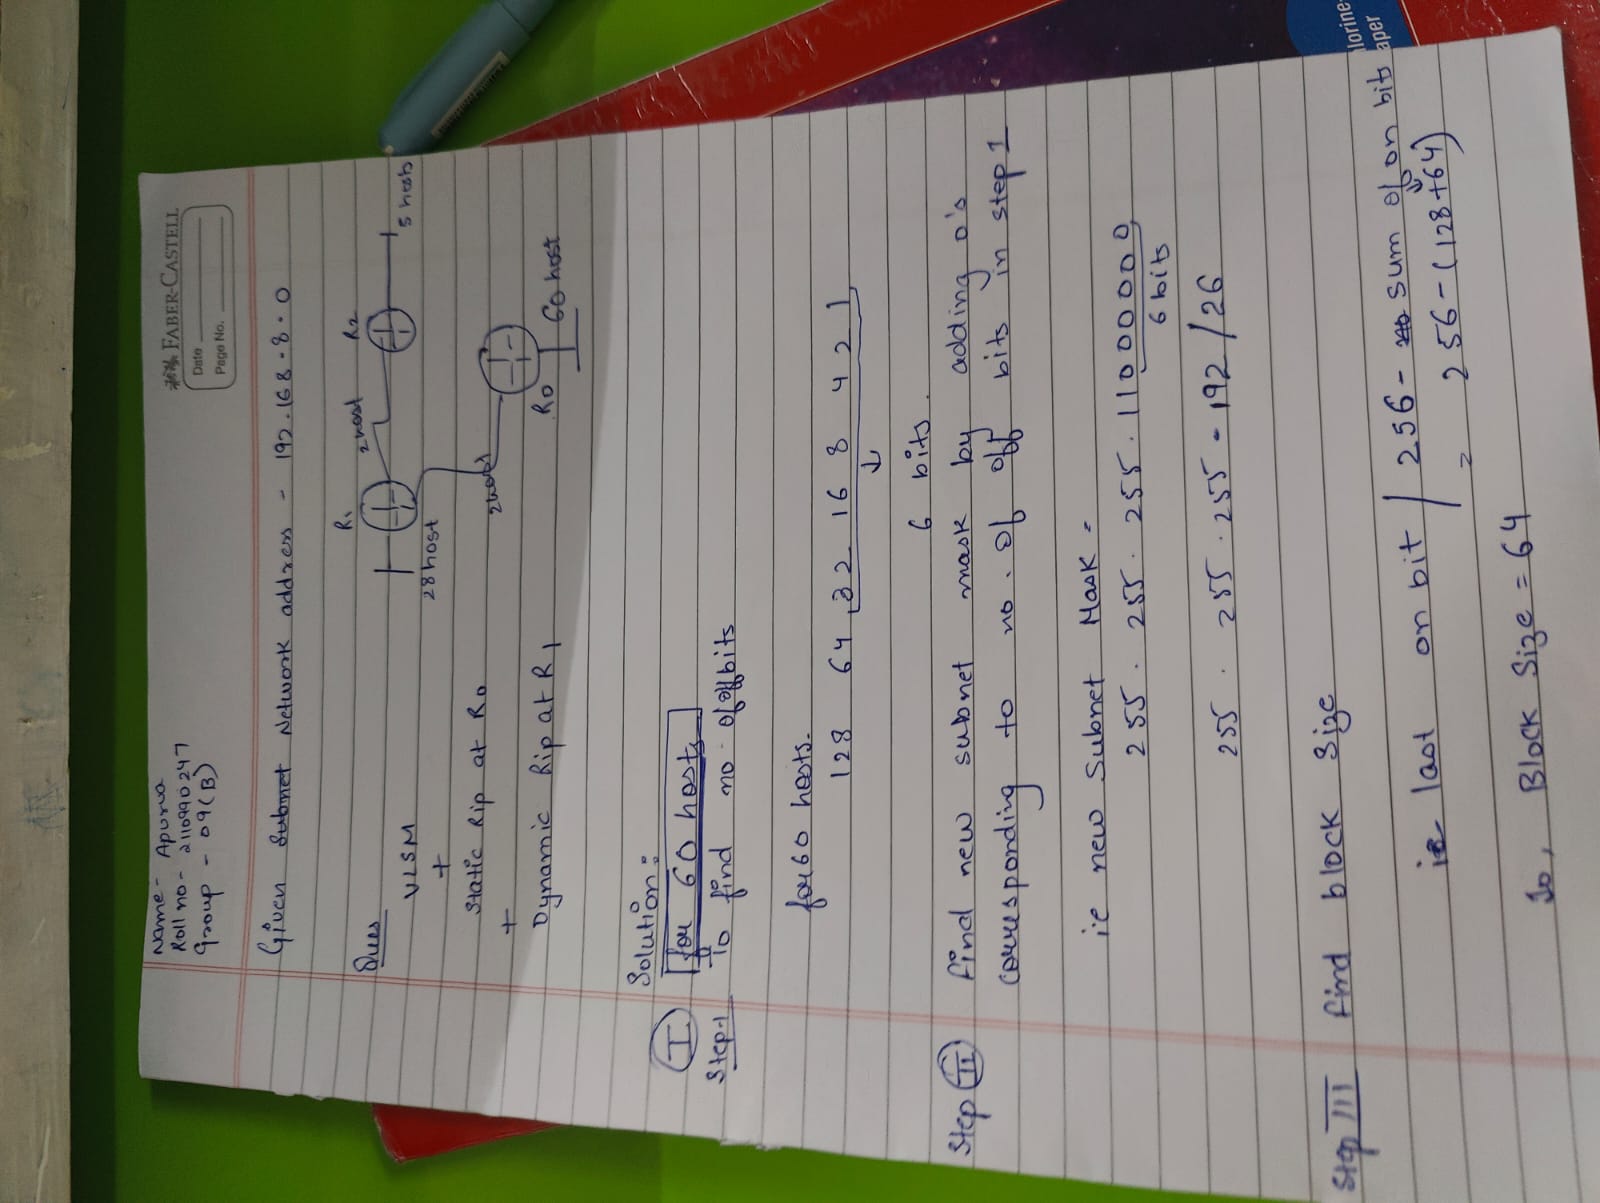 Name - Apurva
Roll no - 2110990247
Group - 09(B)
FABER-CASTELL
Date
Page No.
Given Subnet Network address - 192.168.8.0
Ques
VLSM
+
Static Rip at R0
+
Dynamic Rip at R1
R1
2 host
R2
28 host
5 hosts
2 host
R0
60 host
Solution:
I for 60 hosts
Step-1 To find no. of off bits
for 60 hosts.
128 64 32 16 8 4 2 1
↓
6 bits.
Step II find new subnet mask by adding 0's
corresponding to no. of off bits in step 1
i.e new Subnet Mask =
255. 255. 255. 11000000
6 bits
255 . 255 . 255 - 192 /26
Step III find block size
ie last on bit / 256 - no sum of on bits
= 256 - (128+64)
So, Block Size = 64
lorine-
aper